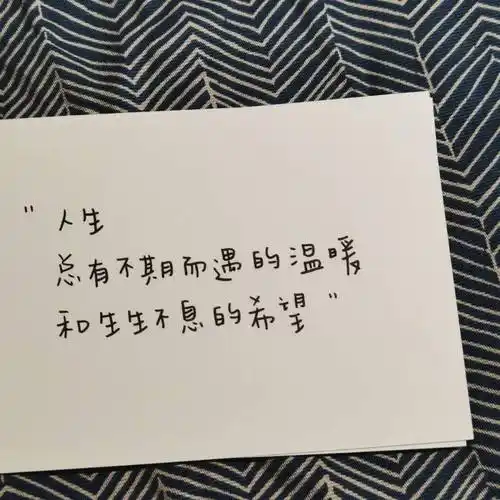 " 人生
总有不期而遇的温暖
和生生不息的希望 "